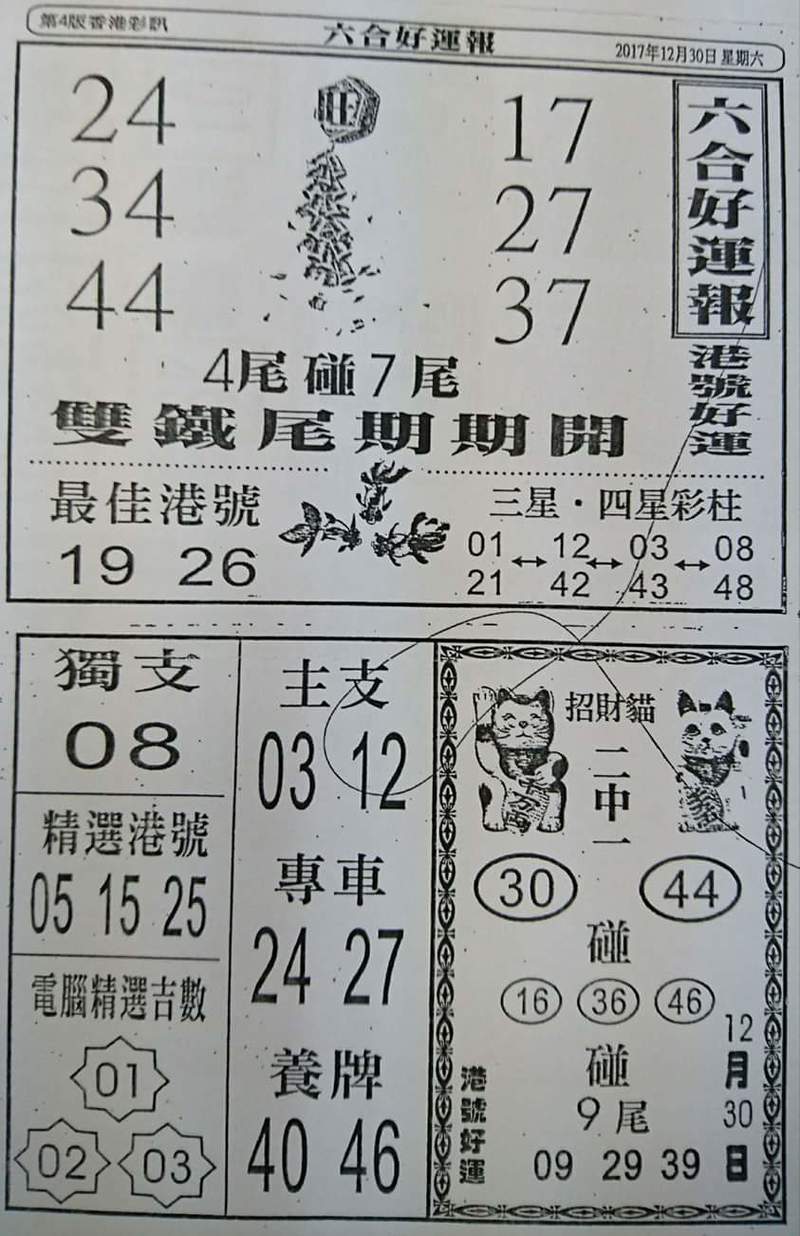 第4版香港彩訊
六合好運報
2017年12月30日 星期六
24
34
44
旺
17
27
37
六合好運報
港號好運
4尾碰7尾
雙鐵尾期期開
最佳港號
19 26
三星·四星彩柱
01↔12↔03↔08
21 42 43 48
獨支
08
精選港號
05 15 25
電腦精選吉數
01
02 03
主支
03 12
專車
24 27
養牌
40 46
招財貓
二中一
千万両
30 44
碰
16 36 46
碰
9尾
09 29 39
港號好運
12月30日